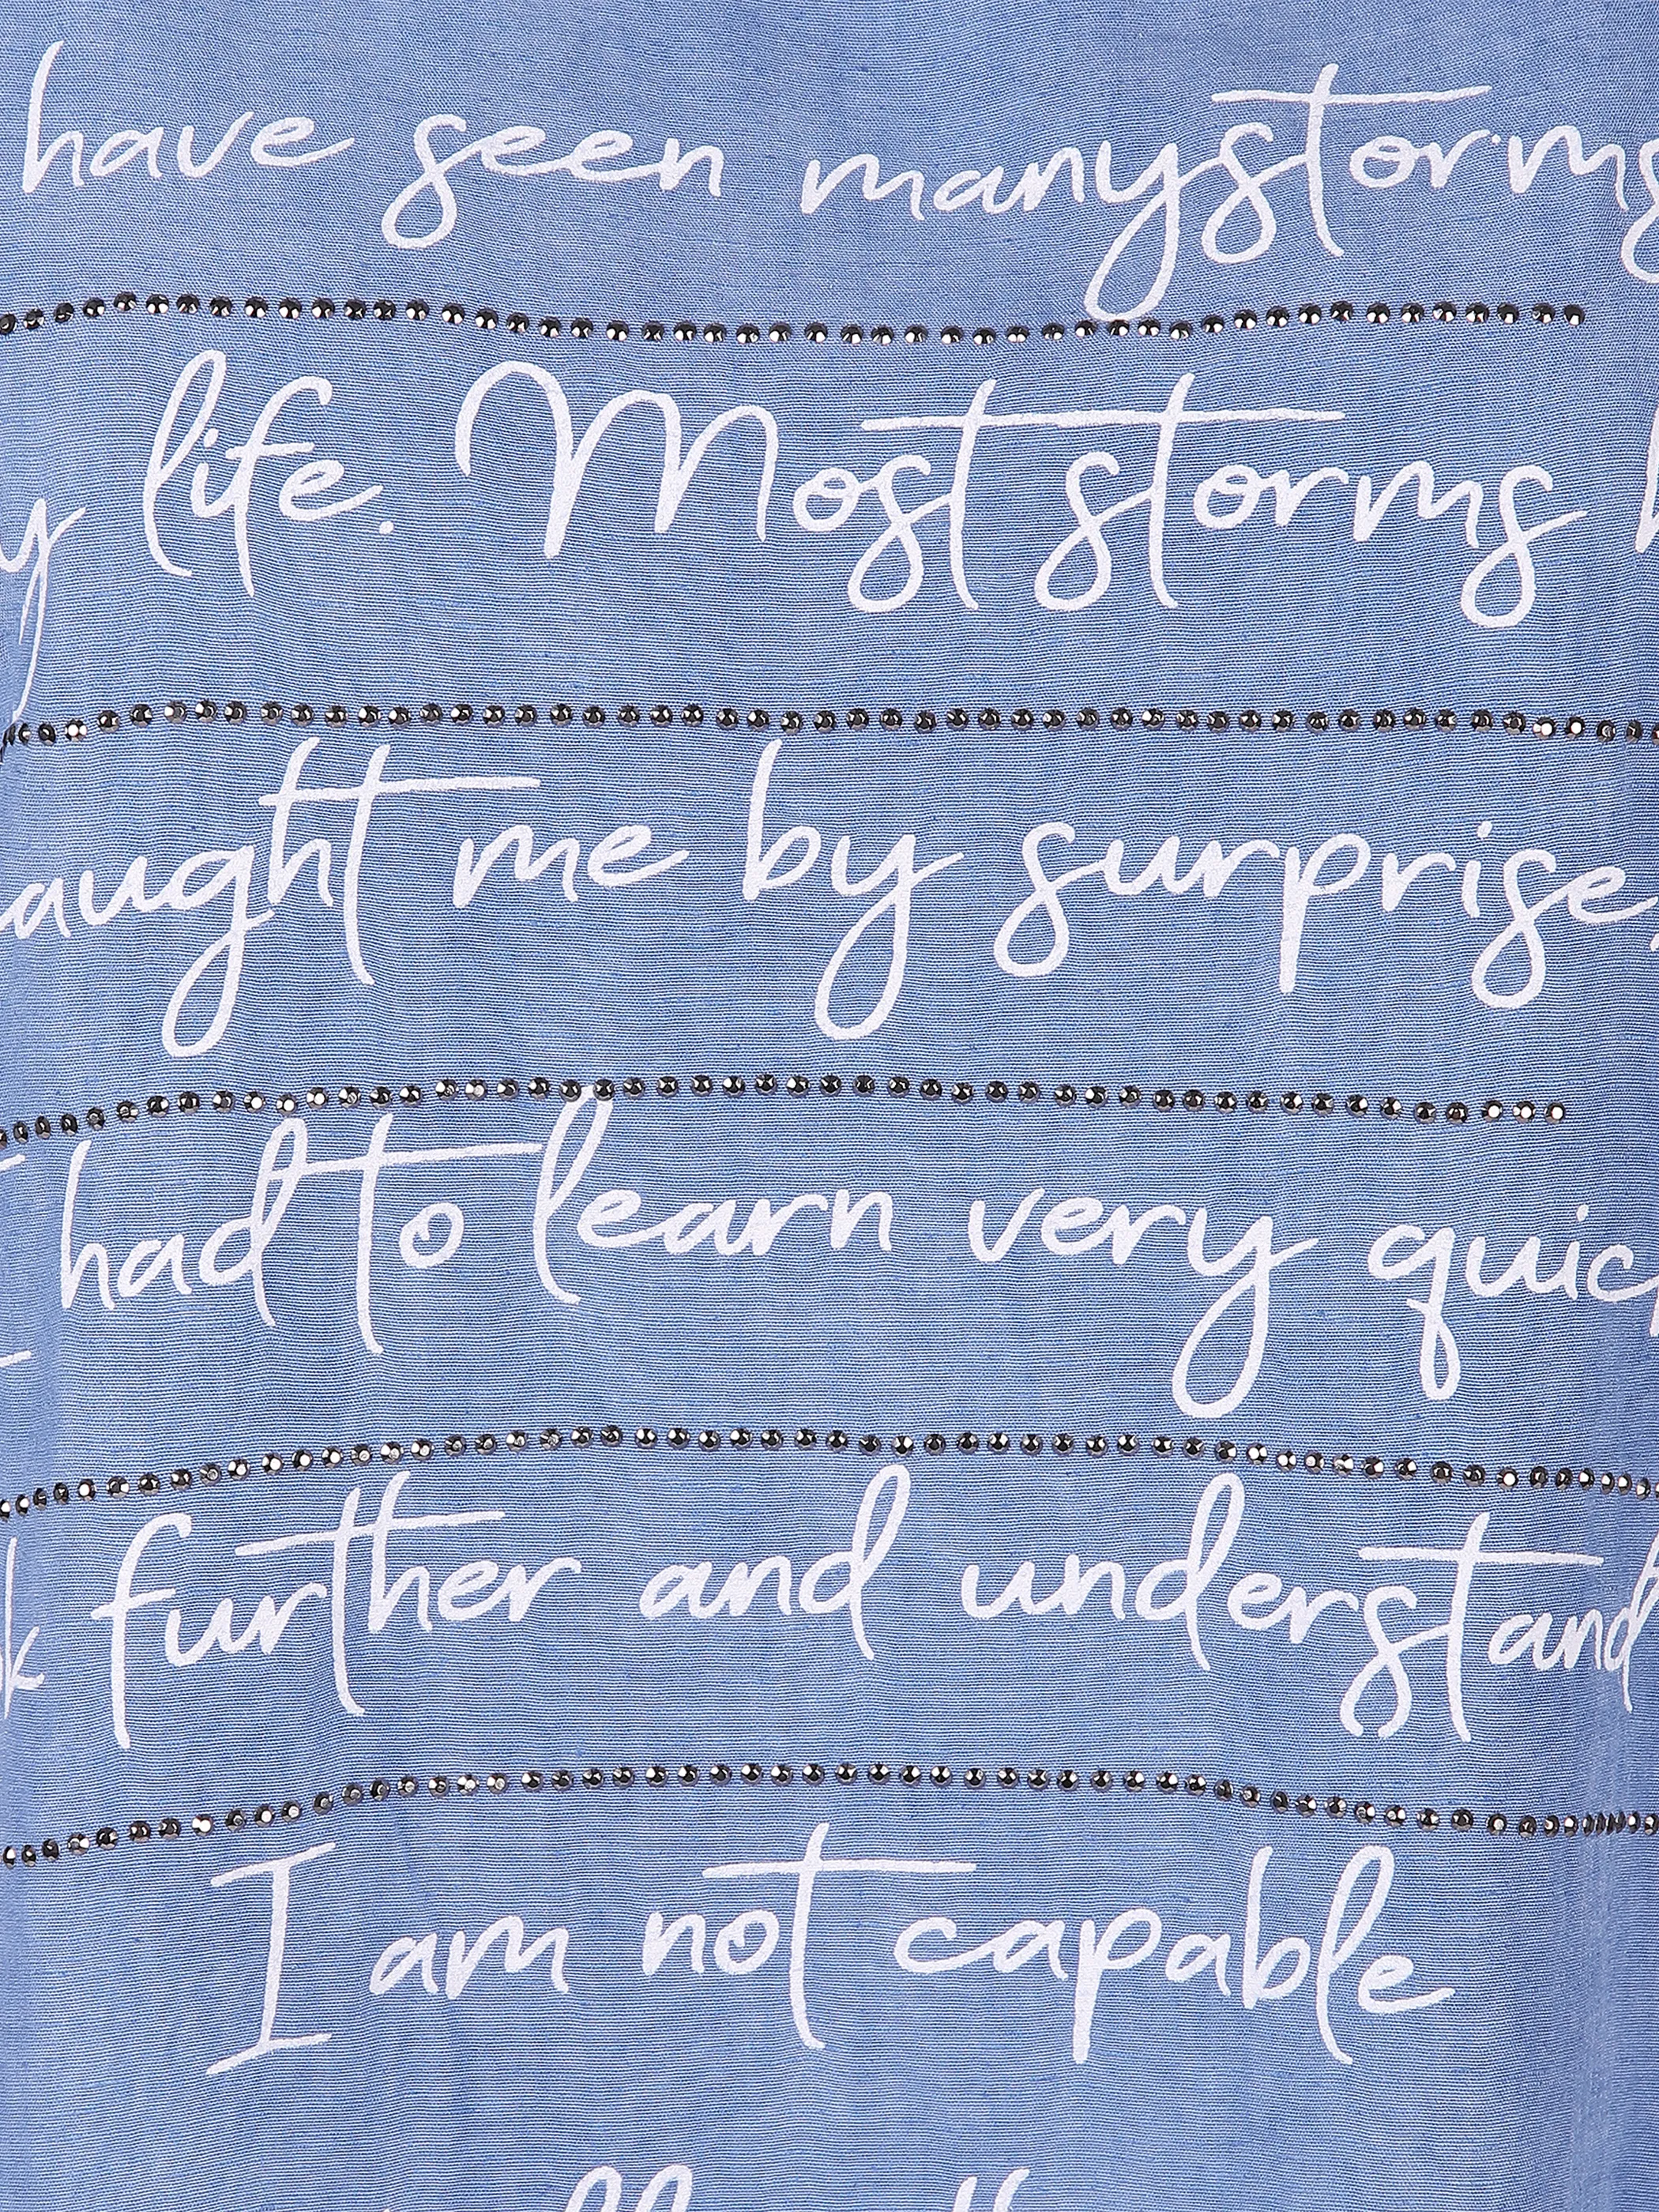 have seen many storms
y life. Most storms
aught me by surprise,
I had to learn very quic
k further and understand
I am not capable